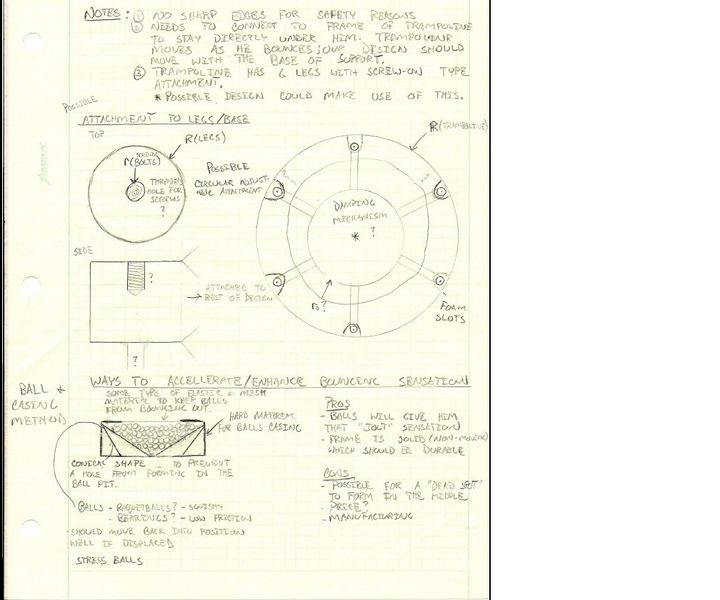 NOTES: ① NO SHARP EDGES FOR SAFETY REASONS
② NEEDS TO CONNECT TO FRAME OF TRAMPOLINE
TO STAY DIRECTLY UNDER HIM. TRAMPOLINE
MOVES AS HE BOUNCES; OUR DESIGN SHOULD
MOVE WITH THE BASE OF SUPPORT.
③ TRAMPOLINE HAS 6 LEGS WITH SCREW-ON TYPE
ATTACHMENT.
* POSSIBLE DESIGN COULD MAKE USE OF THIS.
POSSIBLE
ATTACHMENT TO LEGS/BASE
TOP
R(LEGS)
r(BOLTS)
THREADED
HOLE FOR
SCREWS
?
POSSIBLE
CIRCULAR ADJUST-
ABLE ATTACHMENT
R(TRAMPOLINE)
DAMPING
MECHANISM
* ?
FOAM
SLOTS
SIDE
?
→ ATTACHED TO
REST OF DESIGN
?
WAYS TO ACCELLERATE/ENHANCE BOUNCING SENSATION
BALL &
CASING
METHOD
SOME TYPE OF ELASTIC OR MESH
MATERIAL TO KEEP BALLS
FROM BOUNCING OUT.
HARD MATERIAL
FOR BALLS CASING
CONICAL SHAPE TO PREVENT
A HOLE FROM FORMING IN THE
BALL PIT.
BALLS - RAQUETBALLS? - SQUISHY
- BEARINGS? - LOW FRICTION
- SHOULD MOVE BACK INTO POSITION
WELL IF DISPLACED
STRESS BALLS
PROS
- BALLS WILL GIVE HIM
THAT "JOLT" SENSATION
- FRAME IS SOLID (NON-MOVING)
WHICH SHOULD BE DURABLE
CONS
- POSSIBLE FOR A "DEAD SPOT"
TO FORM IN THE MIDDLE
- PRICE?
- MANUFACTURING